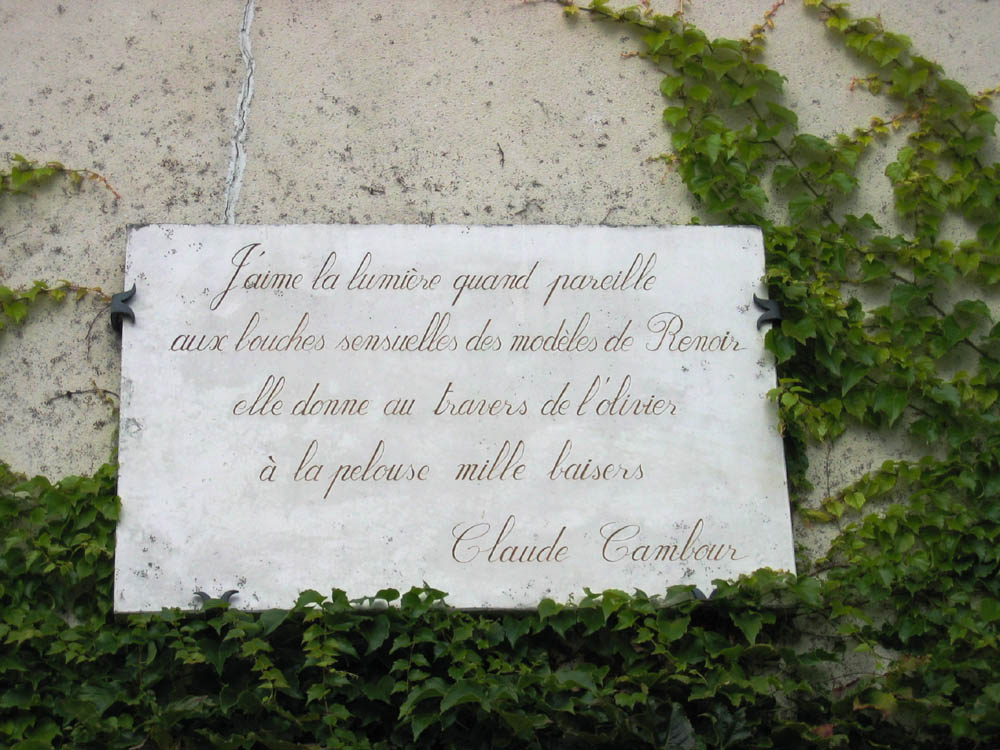 J'aime la lumière quand pareille
aux bouches sensuelles des modèles de Renoir
elle donne au travers de l'olivier
à la pelouse mille baisers
Claude Cambour